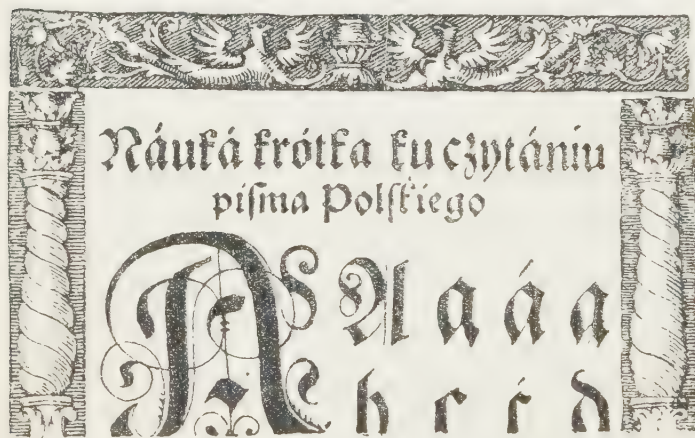 Náuká krótka ku czytániu
piſma Polſkiego
A A a á a
b c ć d